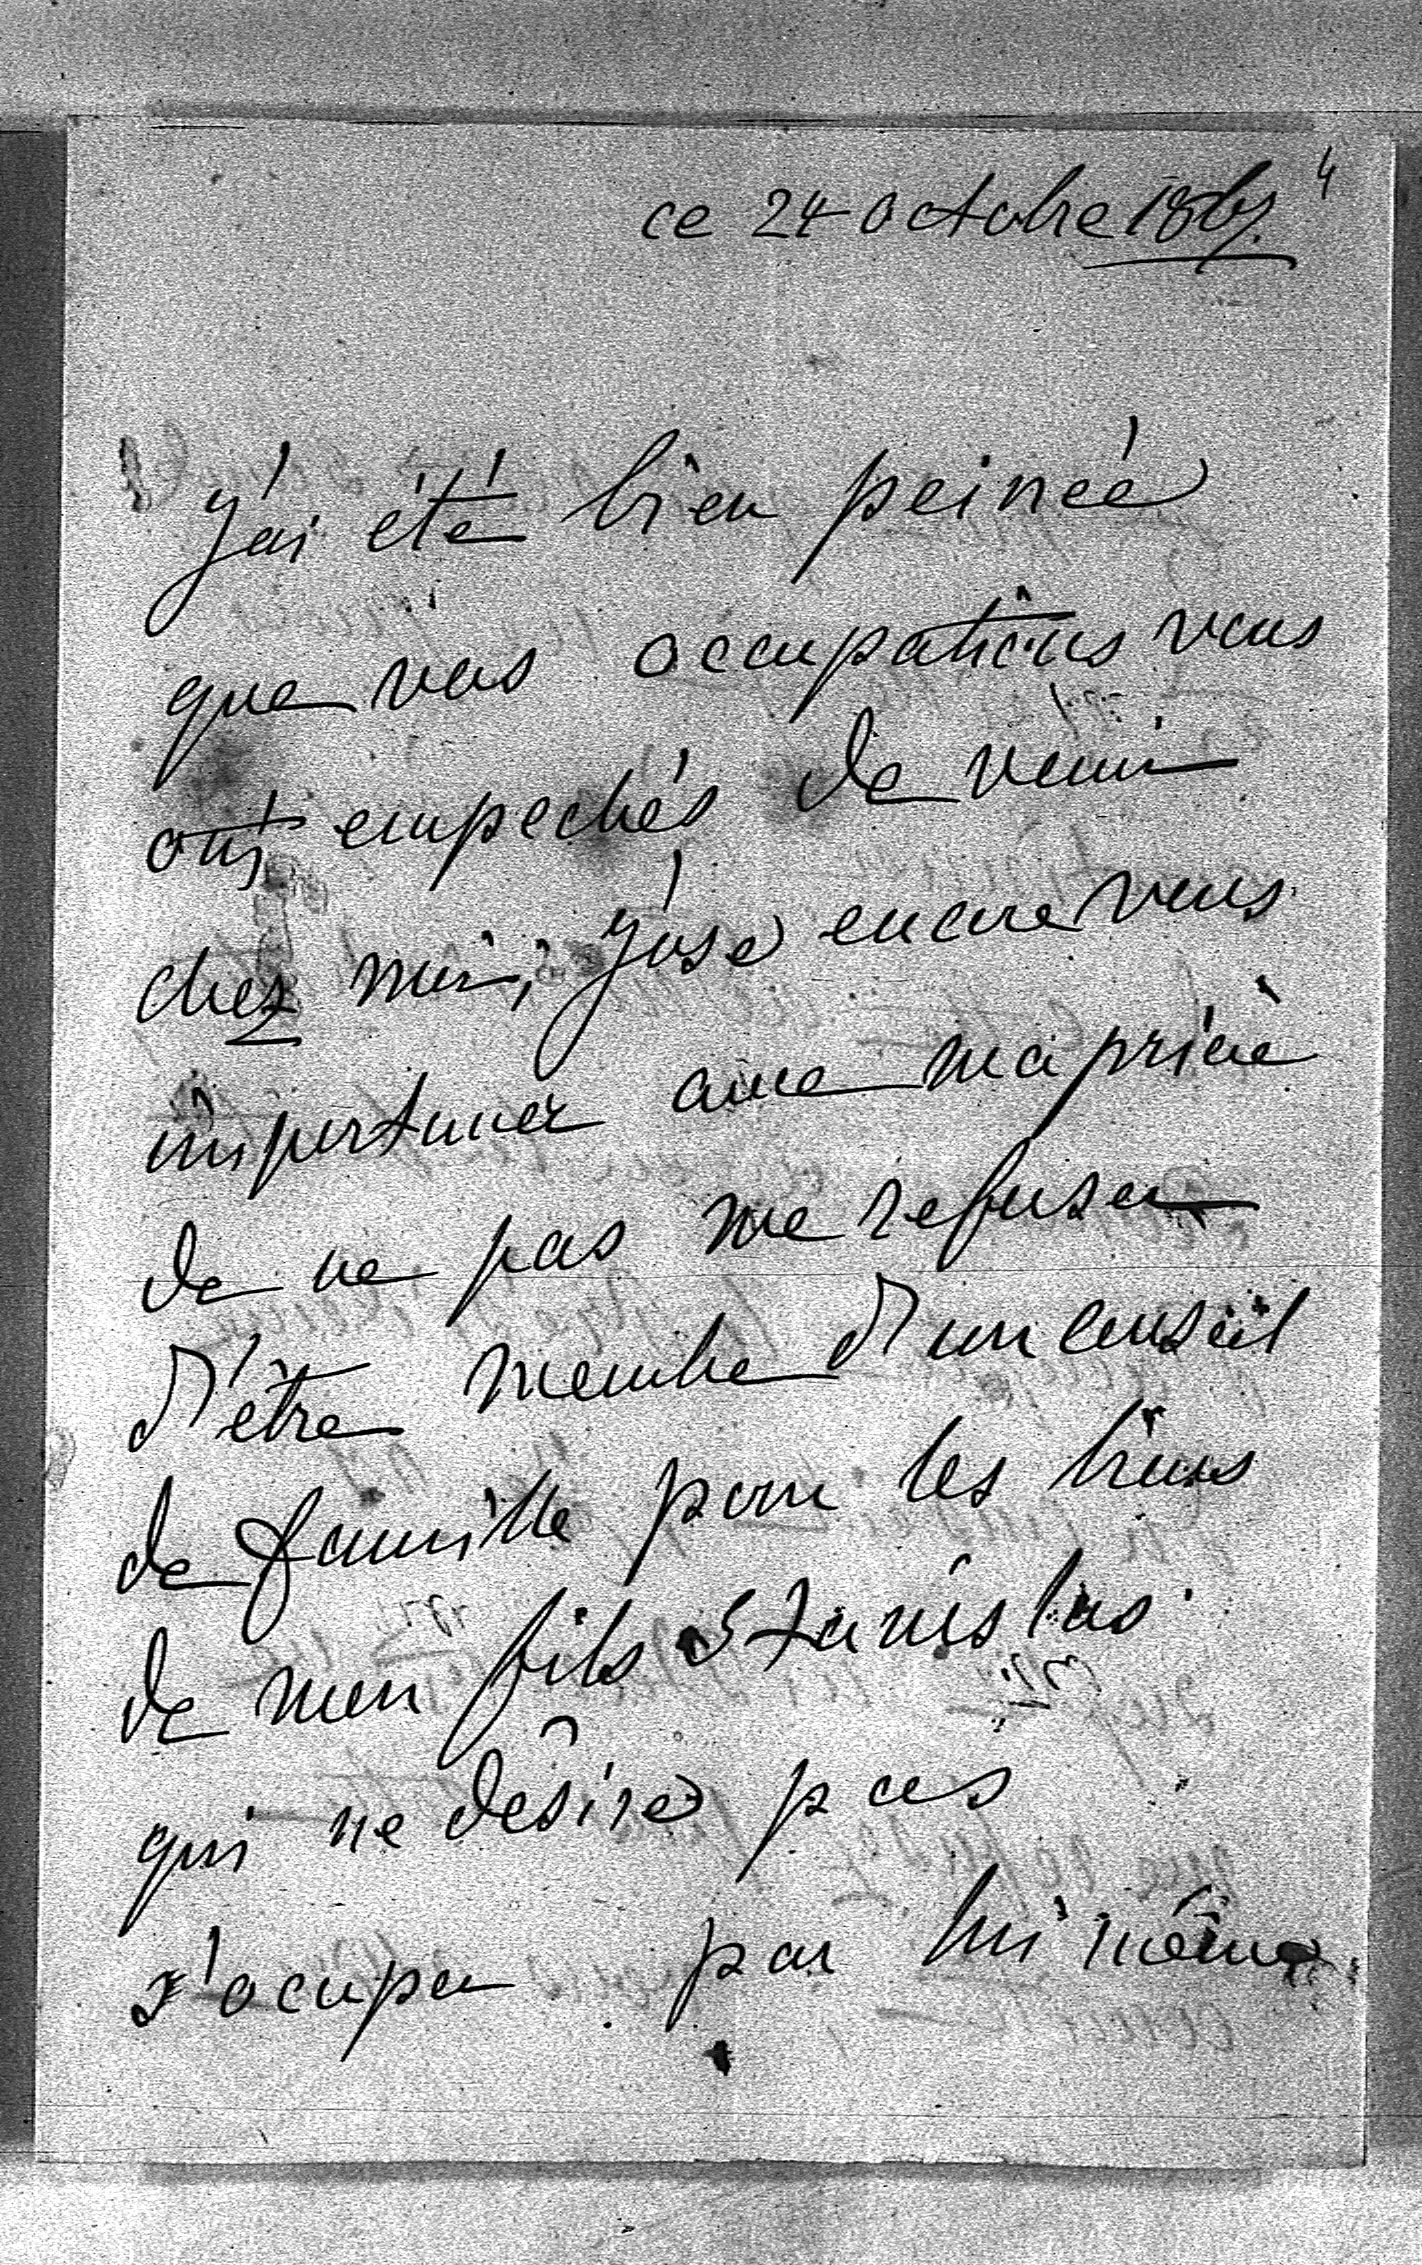 4
ce 24 octobre 1867.
j'ai été bien peinée
que vos occupations vous
ont empechés de venir
chez moi, j'ose encore vous
importuner avec ma prière
de ne pas me refuser
d'être membre d'un conseil
de famille pour les biens
de mon fils Stanislas
qui ne désire pas
s'ocuper par lui même